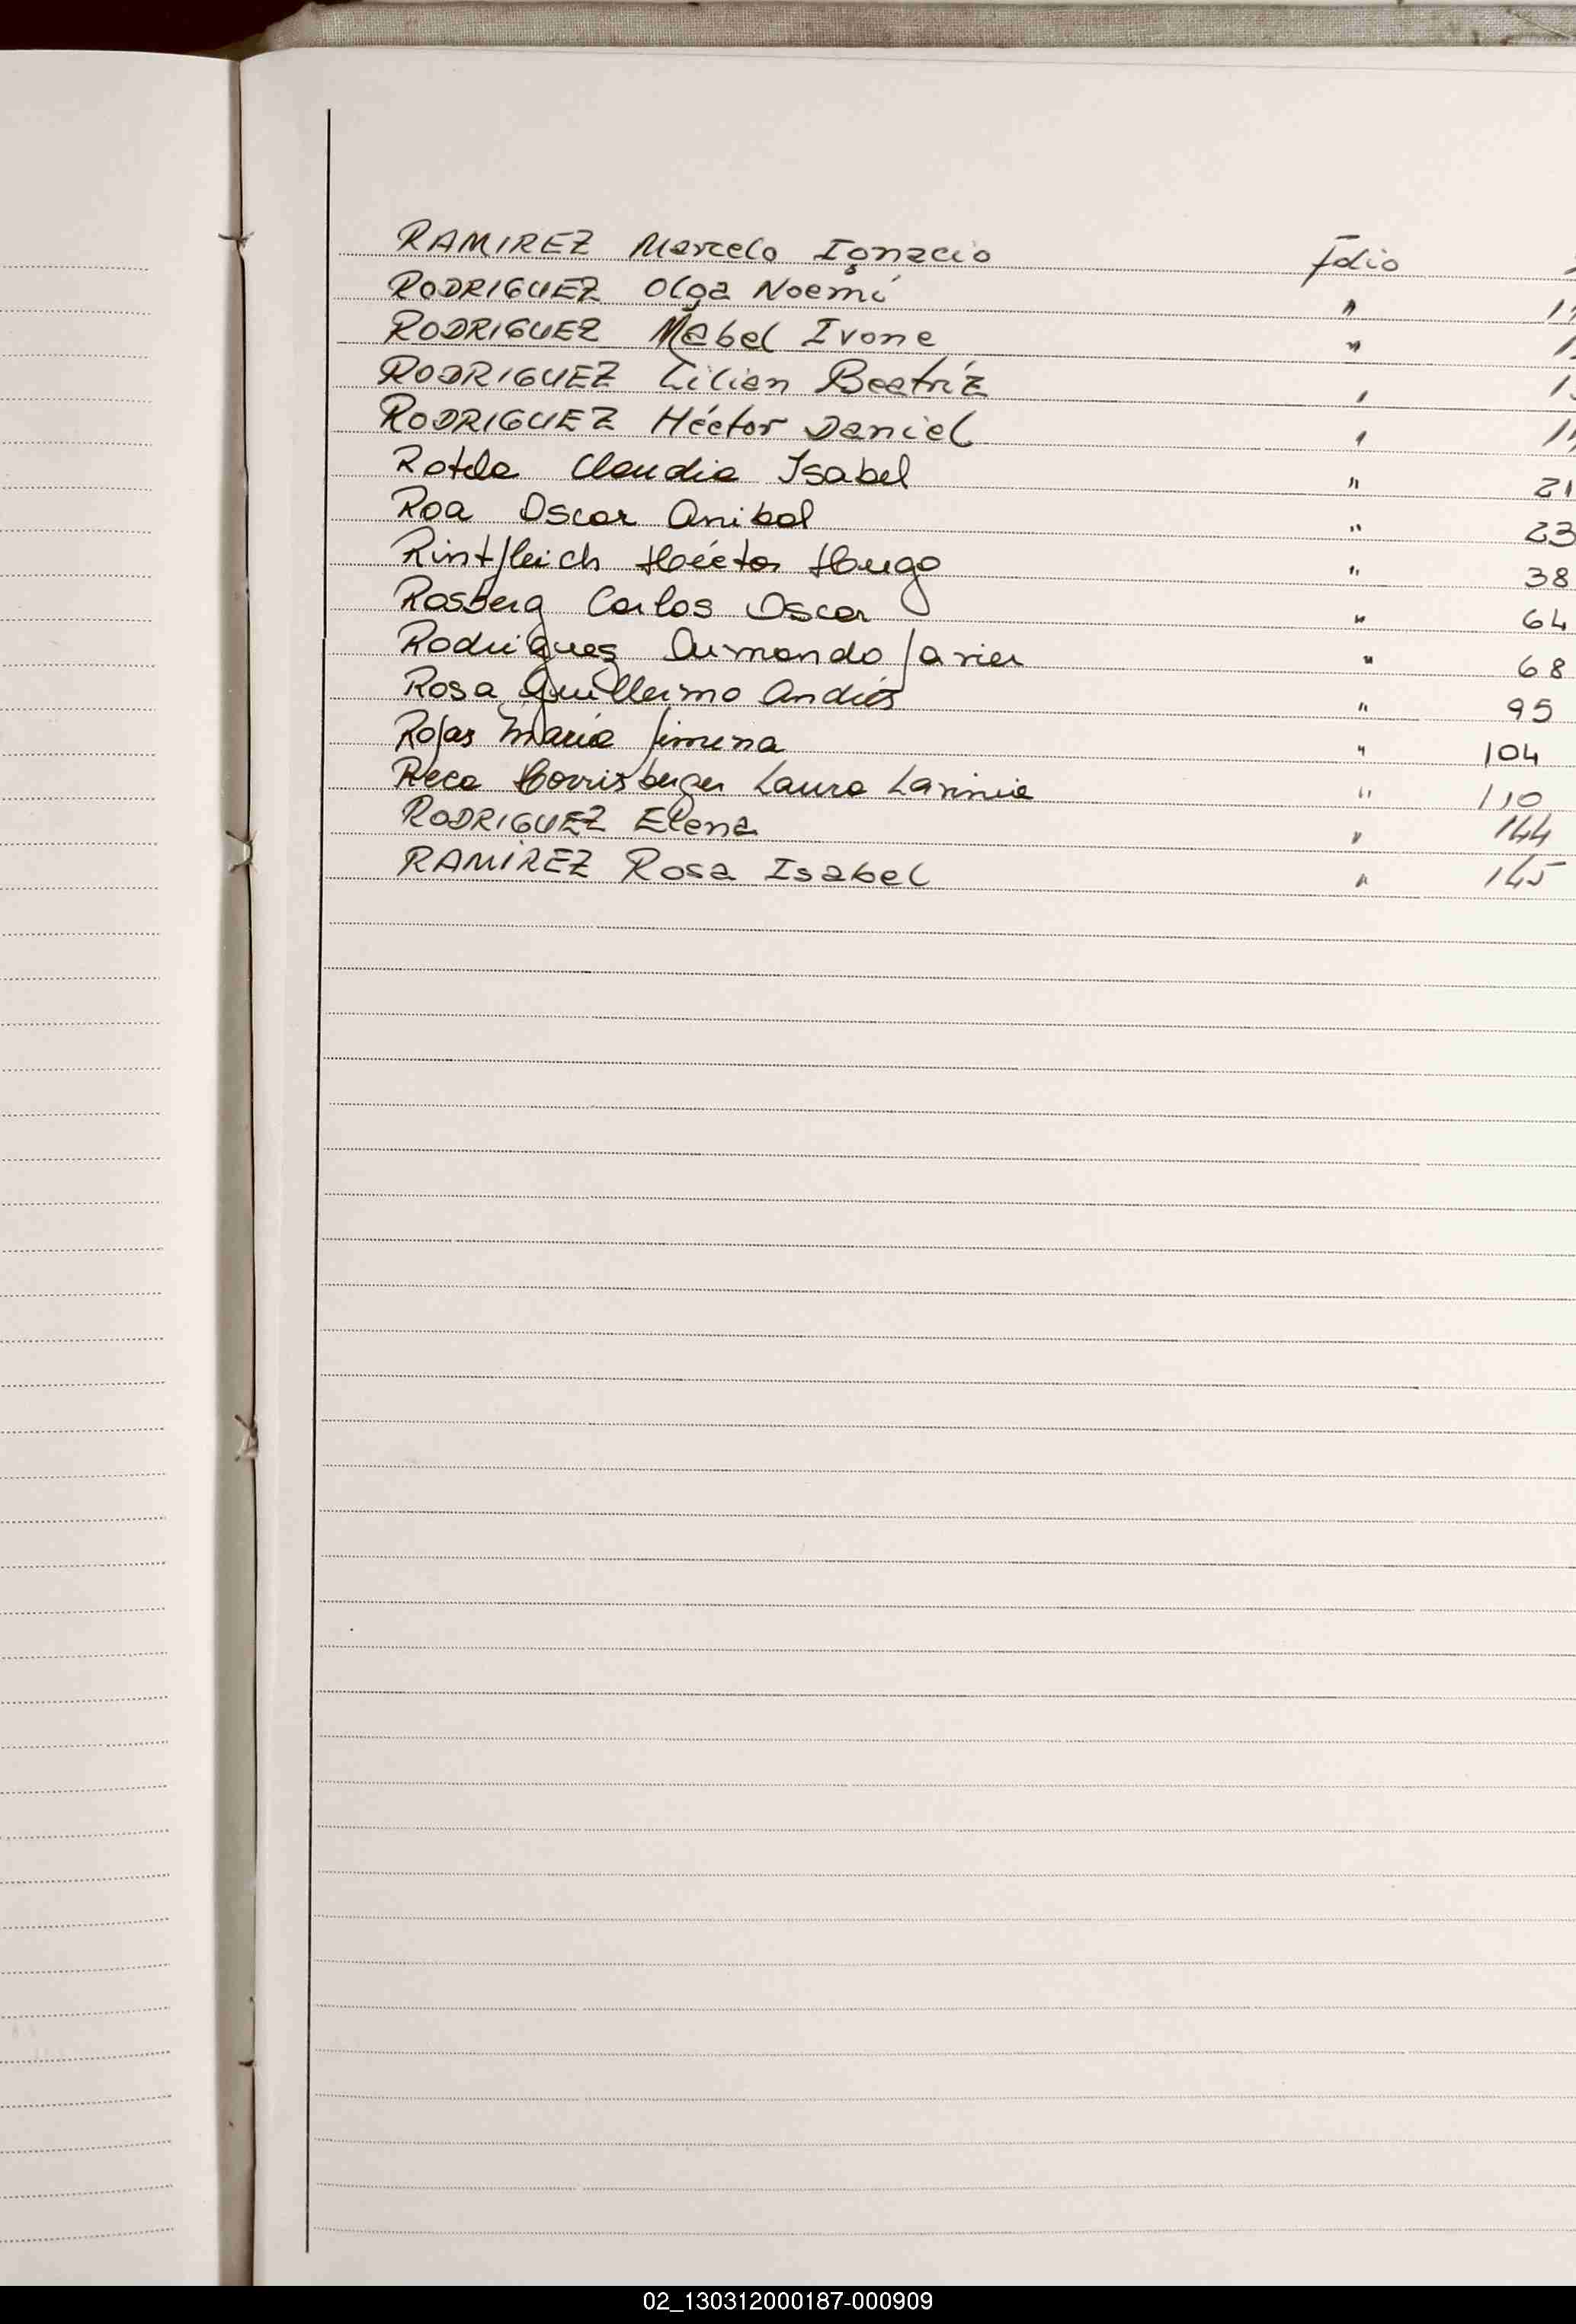 RAMIREZ Marcelo Ignacio Folio
RODRIGUEZ Olga Noemí "
RODRIGUEZ Mabel Ivone "
RODRIGUEZ Lilian Beatríz "
RODRIGUEZ Héctor Daniel "
Rotela Claudia Isabel " 21
Roa Oscar Anibal " 23
Rintfleich Héctor Hugo " 38
Rosberg Carlos Oscar " 64
Rodriguez Armando Javier " 68
Rosa Guillermo Andrés " 95
Rojas María Jimena " 104
Reca Horrisberger Laura Lavinia " 110
RODRIGUEZ Elena " 144
RAMÍREZ Rosa Isabel " 145
02_130312000187-000909